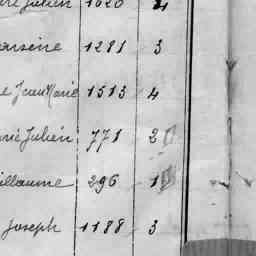 Julien 1020 4
arsène 1281 3
e Jean Marie 1513 4
rie Julien 771 2
illaume 296 1
Joseph 1188 3